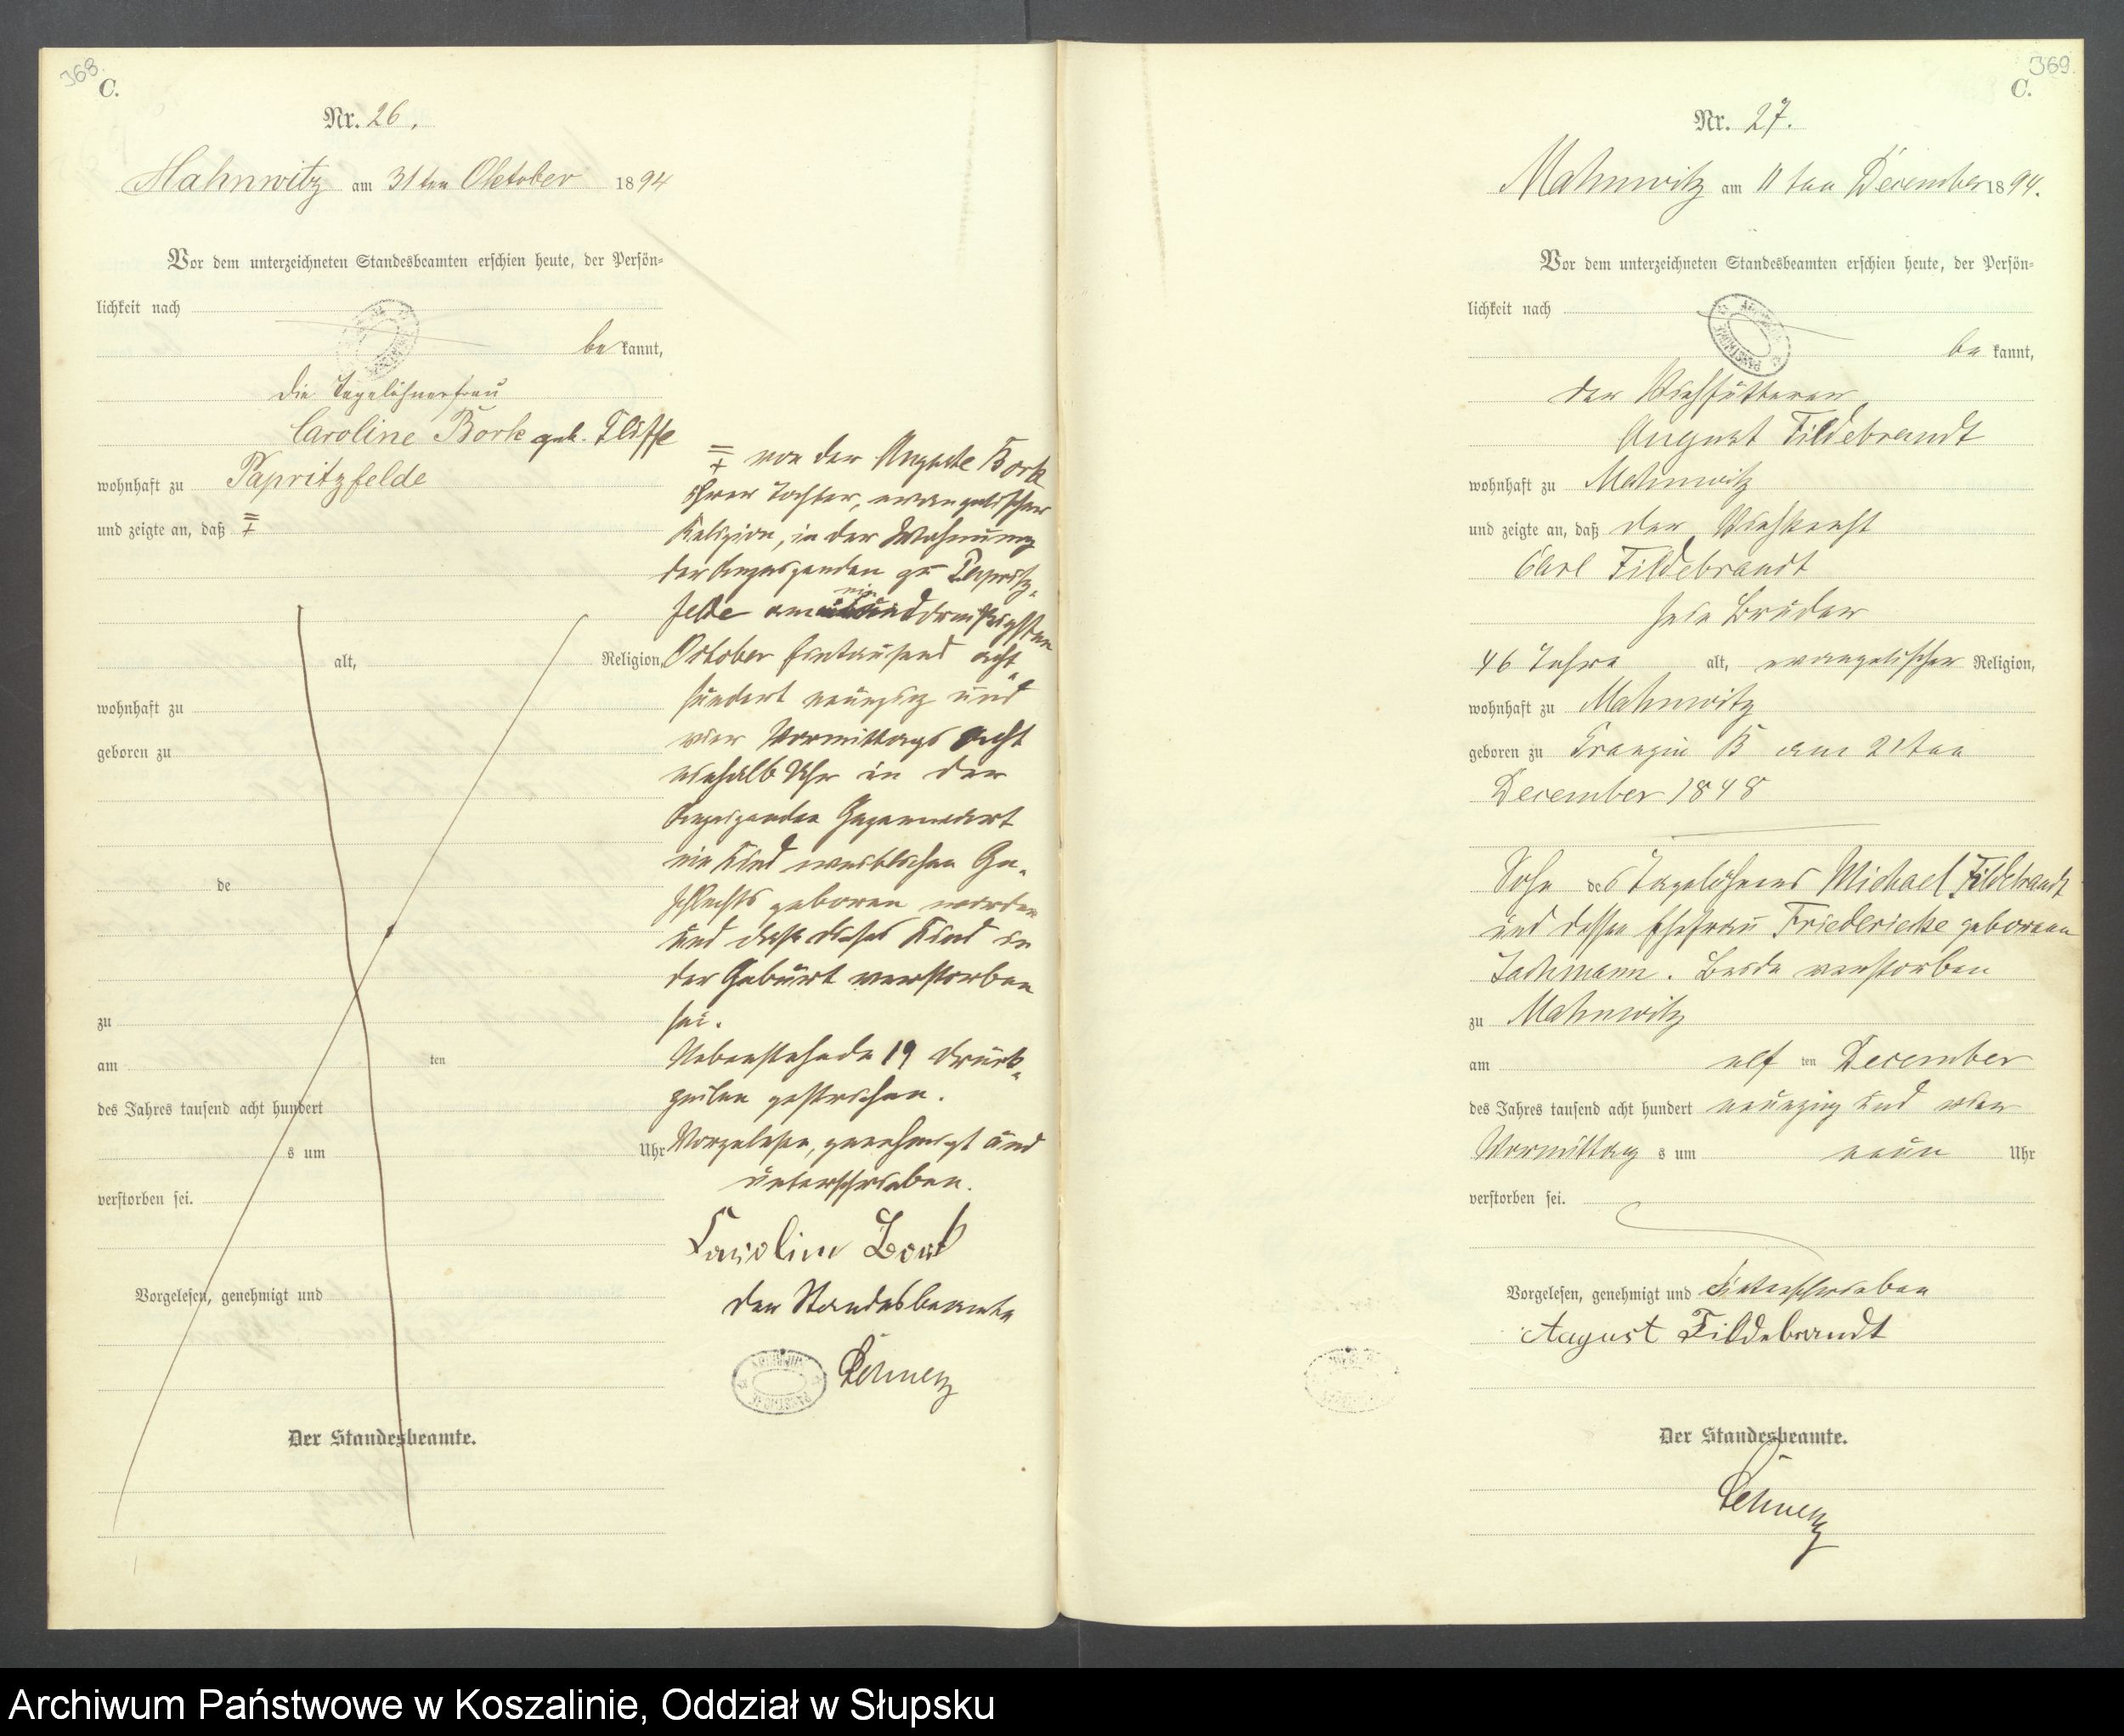 368.
C.
Nr. 26.
Mahnwitz am 31ten Oktober 1894
Vor dem unterzeichneten Standesbeamten erschien heute, der Persön-
lichkeit nach
be kannt,
die Tagelöhnerfrau
Caroline Bork geb.
wohnhaft zu Papritzfelde
und zeigte an, daß
alt, Religion,
wohnhaft zu
geboren zu
de
zu
am ten
des Jahres tausend acht hundert
s um Uhr
verstorben sei.
Vorgelesen, genehmigt und
Der Standesbeamte.
von der Auguste Bork
ihrer Tochter, evangelischer
Religion, in der Wohnung
der Anzeigenden zu Papritz-
felde am ein und dreißigsten
October Eintausend acht
hundert neunzig und
vier Vormittags acht
einhalb Uhr in der
Anzeigenden Gegenwart
ein Kind weiblichen Ge-
schlechts geboren worden
und daß dieses Kind in
der Geburt verstorben
sei.
Nebenstehende 19 Druck-
zeilen gestrichen.
Vorgelesen, genehmigt und
unterschrieben.
Caroline Bork
Der Standesbeamte
369.
C.
Nr. 27.
Mahnwitz am 11ten December 1894.
Vor dem unterzeichneten Standesbeamten erschien heute, der Persön-
lichkeit nach
be kannt,
der Viehfütterer
August Fildebrandt
wohnhaft zu Mahnwitz
und zeigte an, daß der Viehknecht
Carl Fildebrandt
sein Bruder
46 Jahre alt, evangelischer Religion,
wohnhaft zu Mahnwitz
geboren zu Franzin B am 21ten
December 1848
Sohn des Tagelöhners Michael Fildebrandt
und dessen Ehefrau Friedericke geborene
Jachmann. Beide verstorben
zu Mahnwitz
am elf ten December
des Jahres tausend acht hundert neunzig und vier
Vormittag s um neun Uhr
verstorben sei.
Vorgelesen, genehmigt und unterschrieben
August Fildebrandt
Der Standesbeamte.
Archiwum Państwowe w Koszalinie, Oddział w Słupsku